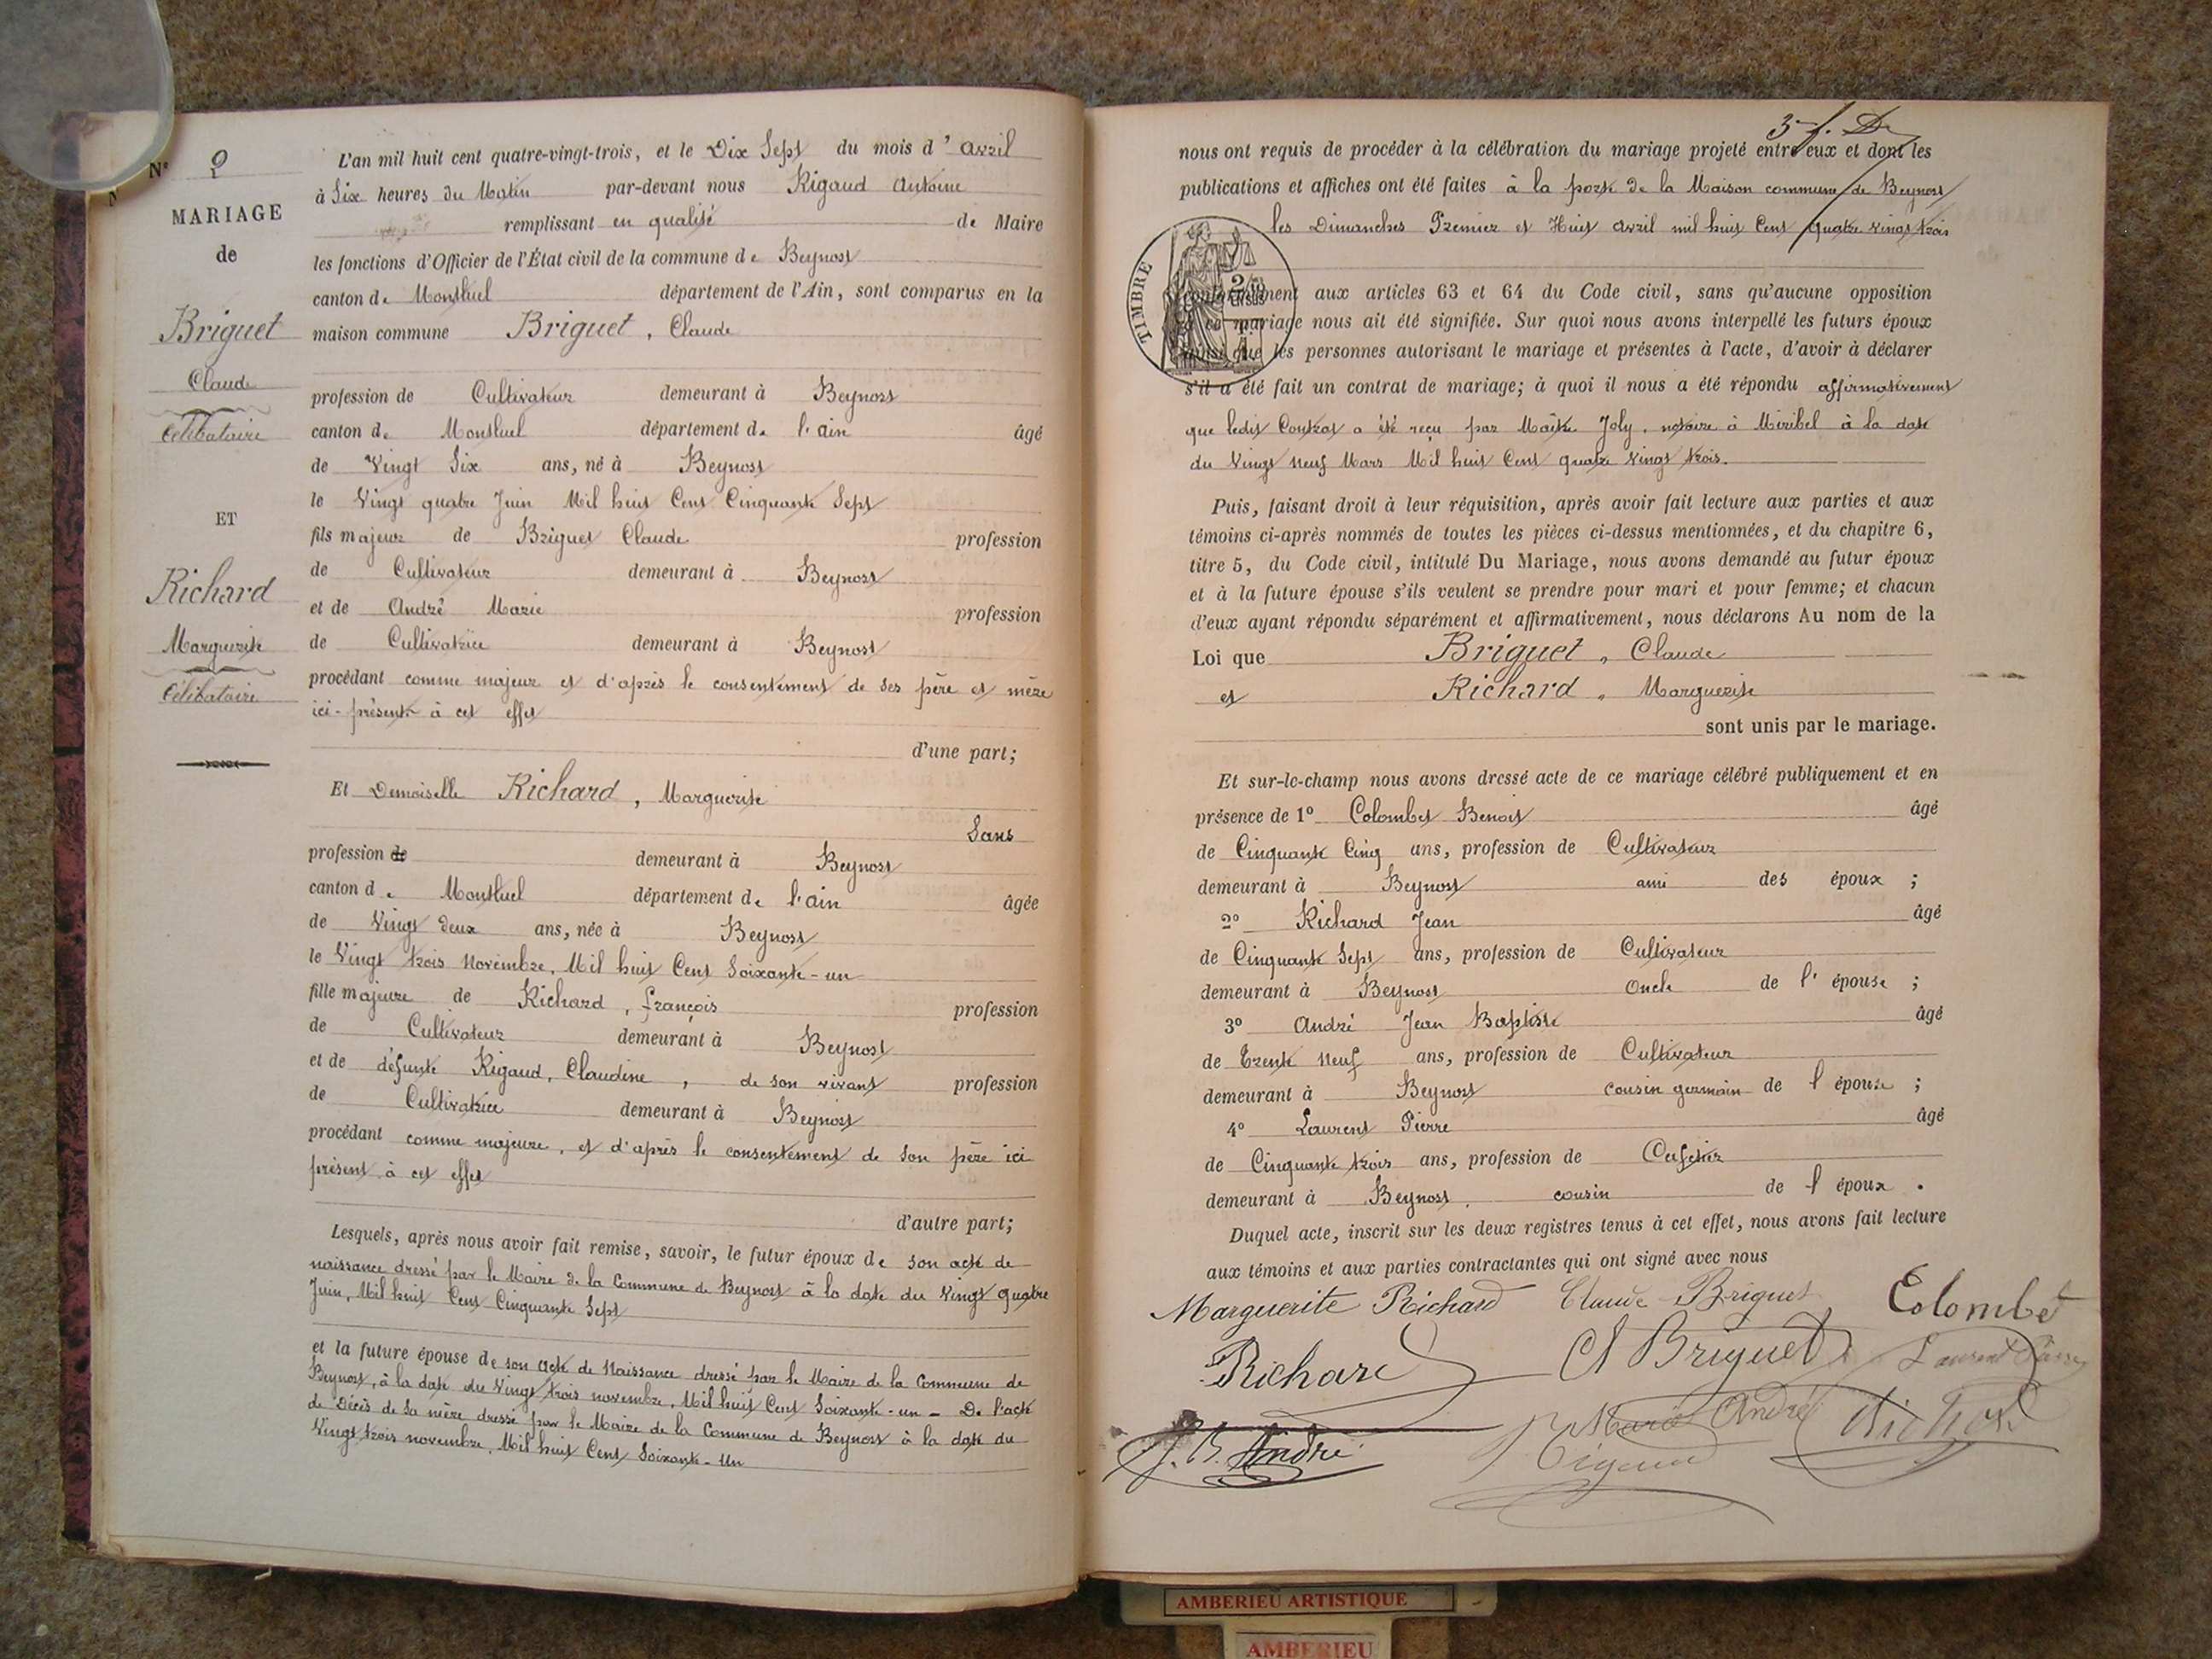 N° 9
MARIAGE
de
Briguet
Claude
Célibataire
ET
Richard
Marguerite
Célibataire
L'an mil huit cent quatre-vingt-trois, et le Dix Sept du mois d'avril
à Six heures du Matin par-devant nous Rigaud Antoine
remplissant en qualité de Maire
les fonctions d'Officier de l'État civil de la commune de Beynost
canton de Montluel département de l'Ain, sont comparus en la
maison commune Briguet, Claude
profession de Cultivateur demeurant à Beynost
canton de Montluel département de l'ain âgé
de Vingt Six ans, né à Beynost
le Vingt quatre Juin Mil huit Cent Cinquante Sept
fils majeur de Briguet Claude profession
de Cultivateur demeurant à Beynost
et de André Marie profession
de Cultivatrice demeurant à Beynost
procédant comme majeur et d'après le consentement de ses père et mère
ici-présents à cet effet
d'une part;
Et Demoiselle Richard, Marguerite
Sans
profession de demeurant à Beynost
canton de Montluel département de l'ain âgée
de Vingt deux ans, née à Beynost
le Vingt trois Novembre, Mil huit Cent Soixante-un
fille majeure de Richard, françois profession
de Cultivateur demeurant à Beynost
et de défunte Rigaud, Claudine, de son vivant profession
de Cultivatrice demeurant à Beynost
procédant comme majeure, et d'après le consentement de son père ici
présent à cet effet
d'autre part;
Lesquels, après nous avoir fait remise, savoir, le futur époux de son acte de
naissance dressé par le Maire de la Commune de Beynost à la date du Vingt quatre
Juin, Mil huit Cent Cinquante Sept
et la future épouse de son acte de Naissance dressé par le Maire de la Commune de
Beynost, à la date du Vingt trois novembre, Mil huit Cent Soixante-un - De l'acte
de Décès de sa mère dressé par le Maire de la Commune de Beynost à la date du
Vingt trois novembre, Mil huit Cent Soixante-Un
nous ont requis de procéder à la célébration du mariage projeté entre eux et dont les
publications et affiches ont été faites à la porte de la Maison commune de Beynost
les Dimanches Premier et Huit avril mil huit Cent quatre vingt trois
TIMBRE
conformément aux articles 63 et 64 du Code civil, sans qu'aucune opposition
à ce mariage nous ait été signifiée. Sur quoi nous avons interpellé les futurs époux
ainsi que les personnes autorisant le mariage et présentes à l'acte, d'avoir à déclarer
s'il a été fait un contrat de mariage; à quoi il nous a été répondu affirmativement
que ledit Contrat a été reçu par Maître Joly, notaire à Miribel à la date
du Vingt neuf Mars Mil huit Cent quatre vingt trois.
Puis, faisant droit à leur réquisition, après avoir fait lecture aux parties et aux
témoins ci-après nommés de toutes les pièces ci-dessus mentionnées, et du chapitre 6,
titre 5, du Code civil, intitulé Du Mariage, nous avons demandé au futur époux
et à la future épouse s'ils veulent se prendre pour mari et pour femme; et chacun
d'eux ayant répondu séparément et affirmativement, nous déclarons Au nom de la
Loi que Briguet, Claude
et Richard, Marguerite
sont unis par le mariage.
Et sur-le-champ nous avons dressé acte de ce mariage célébré publiquement et en
présence de 1° Colombet Benoit âgé
de Cinquante Cinq ans, profession de Cultivateur
demeurant à Beynost ami des époux ;
2° Richard Jean âgé
de Cinquante Sept ans, profession de Cultivateur
demeurant à Beynost Oncle de l'épouse ;
3° André Jean Baptiste âgé
de Trente Neuf ans, profession de Cultivateur
demeurant à Beynost cousin germain de l'époux ;
4° Laurent Pierre âgé
de Cinquante trois ans, profession de Cafetier
demeurant à Beynost, cousin de l'époux .
Duquel acte, inscrit sur les deux registres tenus à cet effet, nous avons fait lecture
aux témoins et aux parties contractantes qui ont signé avec nous
Marguerite Richard Claude Briguet Colombet
Richard Cl Briguet Laurent Pierre
Marie André Richard
J. B. André Rigaud
AMBERIEU ARTISTIQUE
AMBERIEU